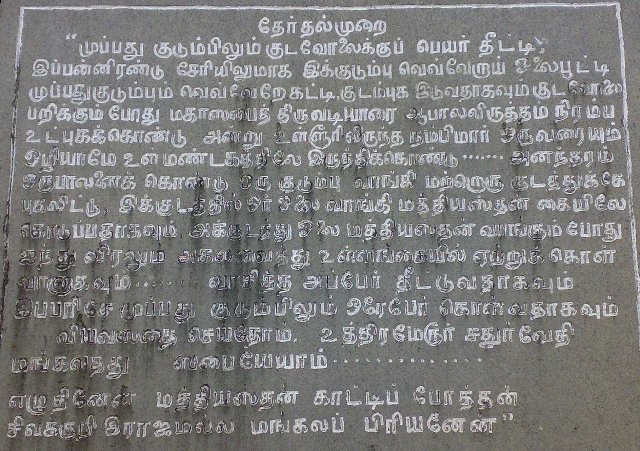 தேர்தல்முறை
"முப்பது குடும்பிலும் குடவோலைக்குப் பெயர் தீட்டி,
இப்பன்னிரண்டு சேரியிலுமாக இக்குடும்பு வெவ்வேறாய் ஓலைபூட்டி
முப்பதுகுடும்பும் வெவ்வேறேகட்டி, குடம்புக இடுவதாகவும் குடவோலை
பறிக்கும் போது மகாஸபைத் திருவடியாரை ஆபாலவிருத்தம் நிரம்ப
உட்புகக்கொண்டு அன்று உள்ளூரிலிருந்த நம்பிமார் ஒருவரையும்
ஒழியாமே உள் மண்டகத்திலே இருத்திக்கொண்டு...... அனந்தரம்
ஒருபாலனைக் கொண்டு ஒரு குடும்பு வாங்கி மற்றொரு குடத்துக்கே
புகலிட்டு, இக்குடத்தில் ஓர் ஓலை வாங்கி மத்தியஸ்தன் கையிலே
கொடுப்பதாகவும், அக்குடத்து ஓலை மத்தியஸ்தன் வாங்கும்போது
ஐந்து விரலும் அகலவைத்து உள்ளங்கையில் ஏற்றுக் கொள்
வானாகவும்...... வாசித்த அப்பேர் தீட்டுவதாகவும்
இப்பரிசே முப்பது குடும்பிலும் ஒரேபேர் கொள்வதாகவும்
வியவஸ்தை செய்தோம். உத்திரமேரூர் சதுர்வேதி
மங்கலத்து ஸபையேயாம்..............
எழுதினேன் மத்தியஸ்தன் காட்டிப் போத்தன்
சிவக்குறி இராஜமல்ல மங்கலப் பிரியனேன்"